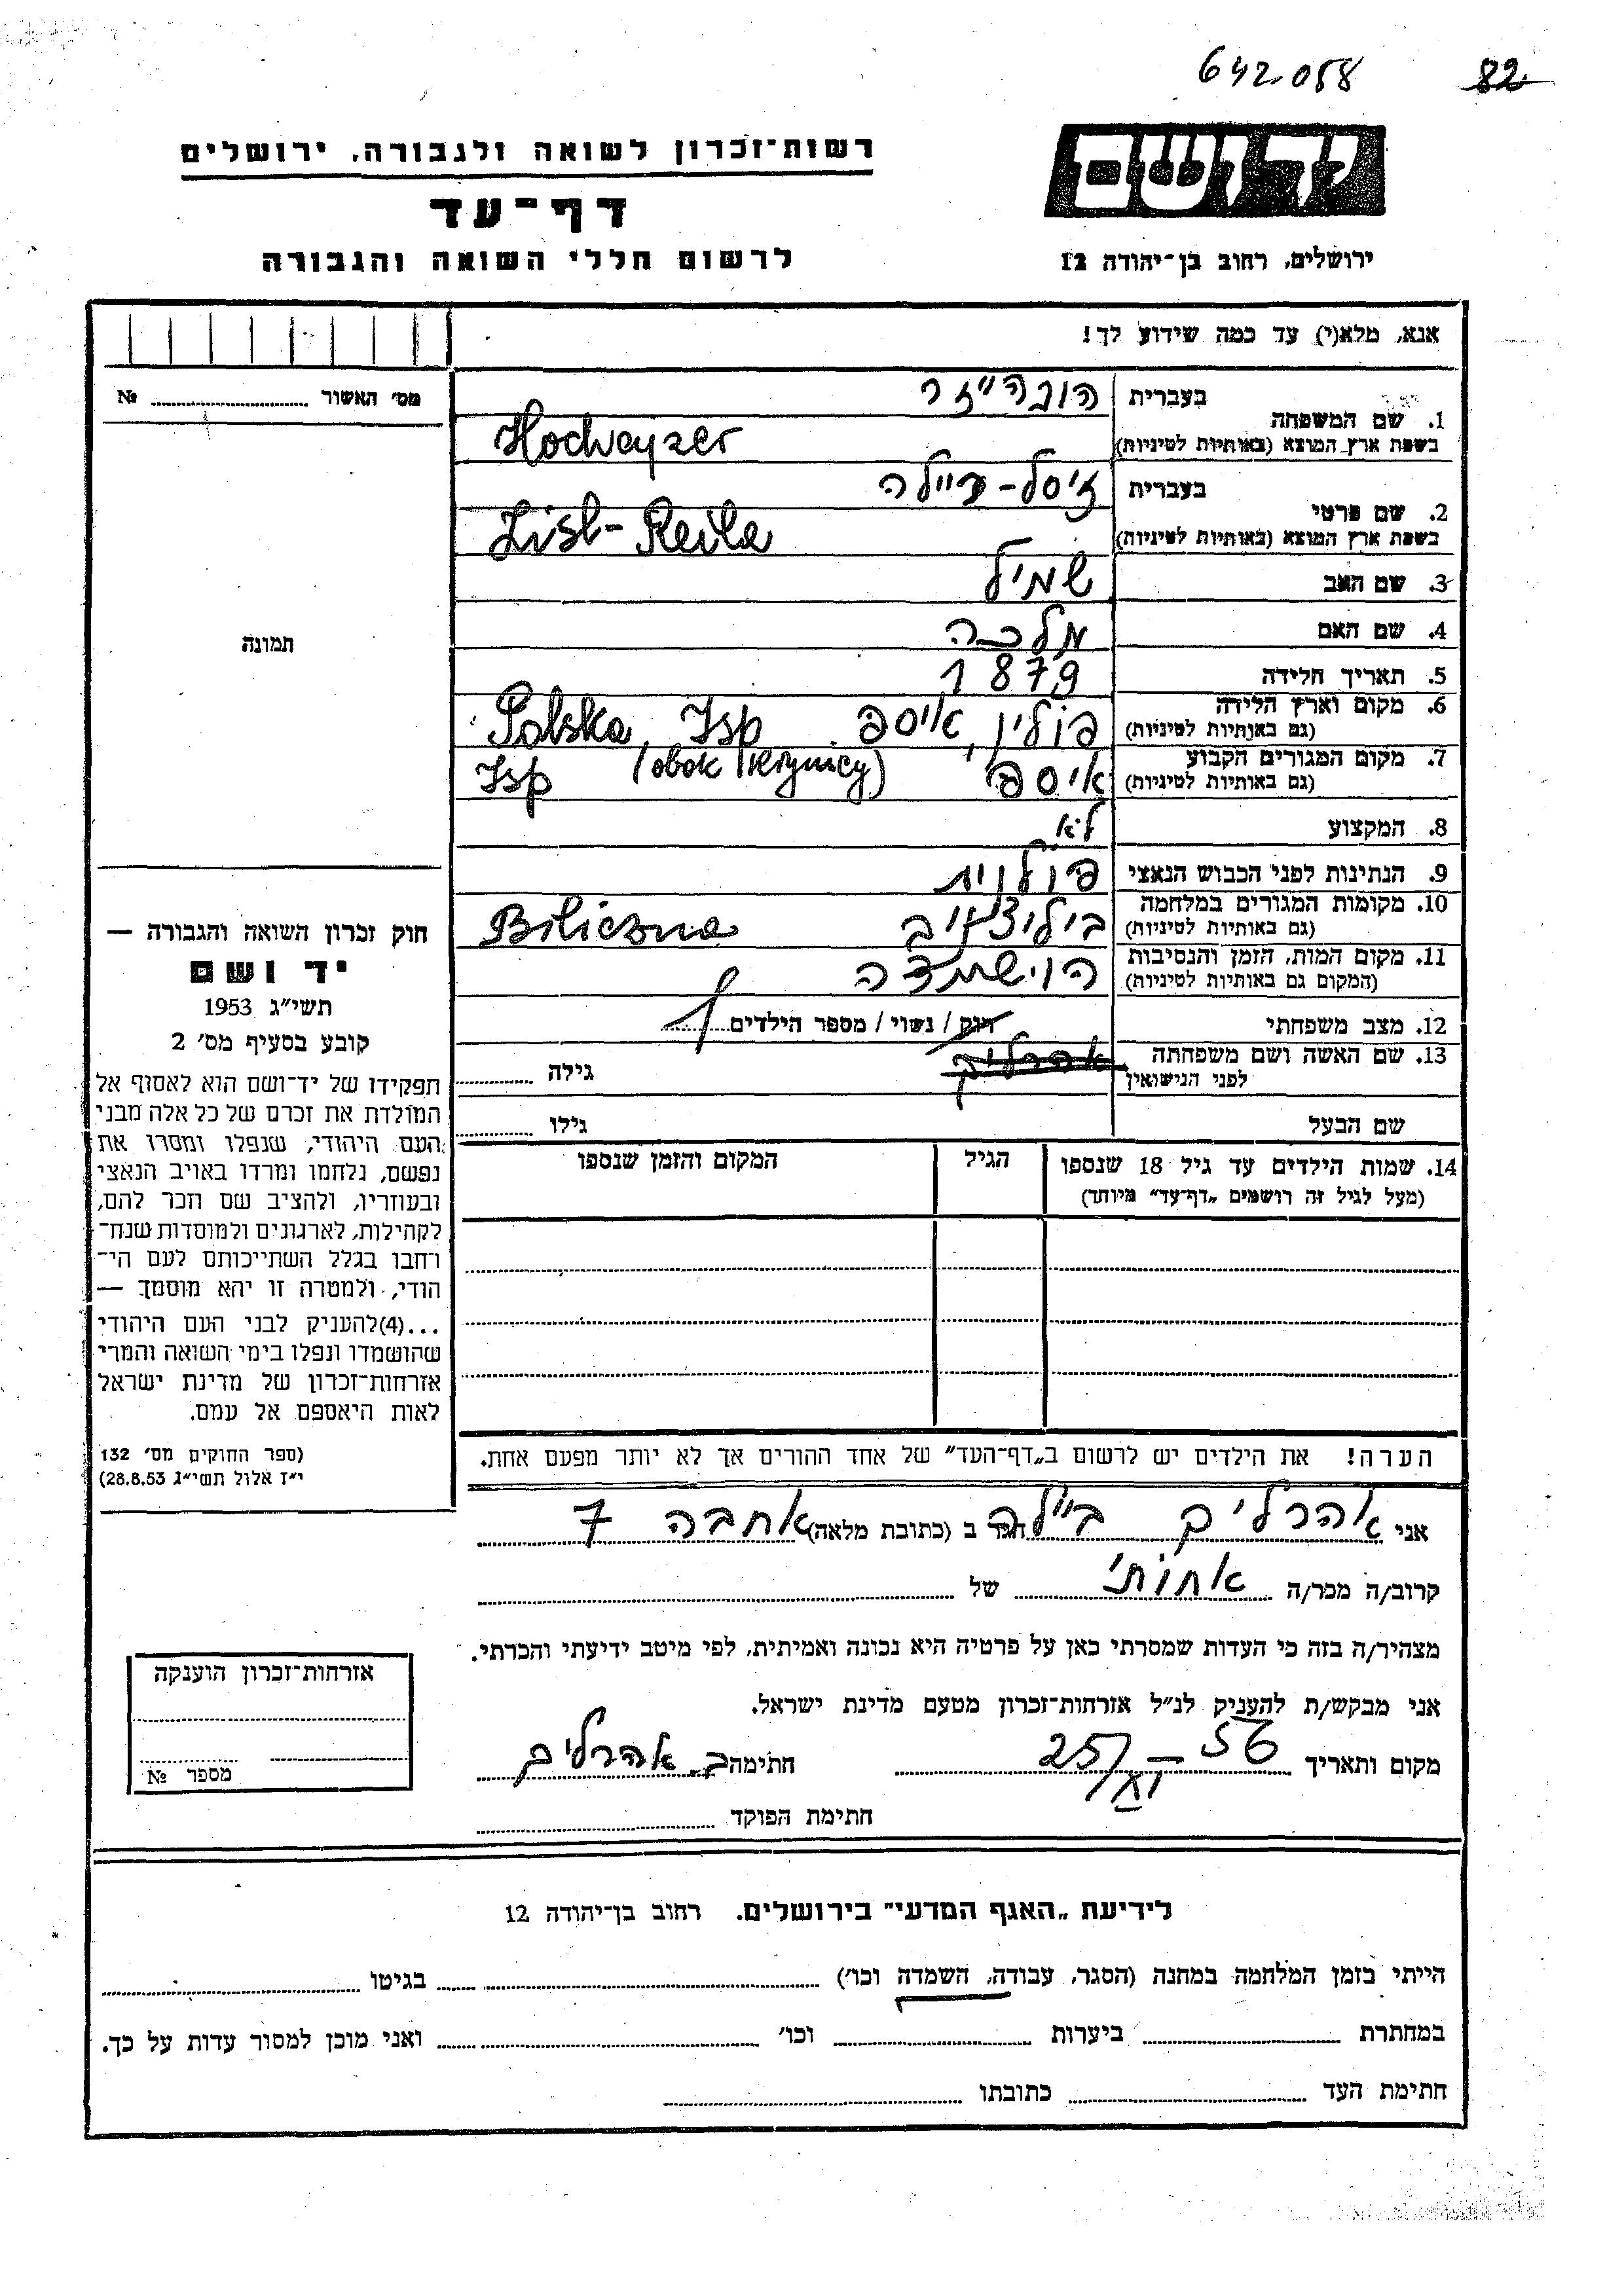 642.058 82
יד ושם
רשות־זכרון לשואה ולגבורה, ירושלים
דף־עד
לרשום חללי השואה והגבורה
ירושלים, רחוב בן־יהודה 12
אנא, מלא(י) עד כמה שידוע לך!
מס' האשור № 
1. שם המשפחה
בעברית
בשפת ארץ המוצא (באותיות לטיניות)
Hochweyzer
2. שם פרטי
בעברית זיסל-ריילה
בשפת ארץ המוצא (באותיות לטיניות)
Zisl-Reila
3. שם האב שמיל
4. שם האם מלכה
5. תאריך חלידה 1879
6. מקום וארץ הלידה
(גם באותיות לטיניות) פולין, איספ Polska, Isp
7. מקום המגורים הקבוע
(גם באותיות לטיניות) איספ (obok Krynicy) Isp
8. המקצוע לא
9. הנתינות לפני הכבוש הנאצי פולנית
10. מקומות המגורים במלחמה
(גם באותיות לטיניות) Biliczna
11. מקום המות, הזמן והנסיבות
(המקום גם באותיות לטיניות) הושמדה
12. מצב משפחתי רווק / נשוי / מספר הילדים
13. שם האשה ושם משפחתה
לפני הנישואין
גילה
שם הבעל גילו
14. שמות הילדים עד גיל 18 שנספו
(מעל לגיל זה רושמים „דף־עד” מיוחד)
הגיל
המקום והזמן שנספו
הערה! את הילדים יש לרשום ב„דף־העד” של אחד ההורים אך לא יותר מפעם אחת.
תמונה
חוק זכרון השואה והגבורה —
יד ושם
תשי״ג 1953
קובע בסעיף מס' 2
תפקידו של יד־ושם הוא לאסוף אל
המולדת את זכרם של כל אלה מבני
העם היהודי, שנפלו ומסרו את
נפשם, נלחמו ומרדו באויב הנאצי
ובעוזריו, ולהציב שם וזכר להם,
לקהילות, לארגונים ולמוסדות שנח־
רחבו בגלל השתייכותם לעם הי־
הודי, ולמטרה זו יהא מוסמך —
...(4)להעניק לבני העם היהודי
שהושמדו ונפלו בימי השואה והמרי
אזרחות־זכרון של מדינת ישראל
לאות היאספם אל עמם.
(ספר החוקים מס' 132
י״ז אלול תשי״ג 28.8.53)
אני אהרליך ביילה הגר ב (כתובת מלאה) אחבה 7
קרוב/ה מכר/ה אחותי של
מצהיר/ה בזה כי העדות שמסרתי כאן על פרטיה היא נכונה ואמיתית, לפי מיטב ידיעתי והכרתי.
אני מבקש/ת להעניק לנ״ל אזרחות־זכרון מטעם מדינת ישראל.
מקום ותאריך 25/XI — 56 חתימה ב. אהרליך
חתימת הפוקד
אזרחות־זכרון הוענקה
מספר №
לידיעת „האגף המדעי” בירושלים. רחוב בן־יהודה 12
הייתי בזמן המלחמה במחנה (הסגר, עבודה, השמדה וכו') בגיטו
במחתרת ביערות וכו' ואני מוכן למסור עדות על כך.
חתימת העד כתובתו